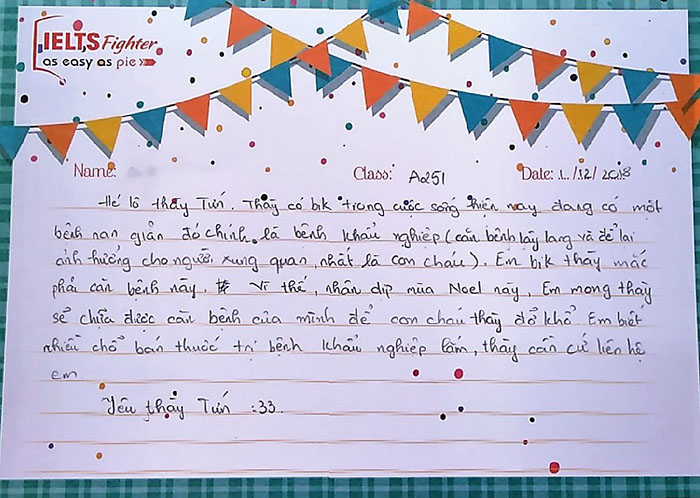 IELTS Fighter
as easy as pie
Name:
Class: A251
Date: 1../12/2018
Hé lô thầy Tuấn. Thầy có bik trong cuộc sống hiện nay đang có một
bệnh nan giản đó chính là bệnh khẩu nghiệp (căn bệnh lây lang và để lại
ảnh hưởng cho người xung quan, nhất là con cháu). Em bik thầy mắc
phải căn bệnh này. Vì thế, nhân dịp mùa Noel này, Em mong thầy
sẽ chữa được căn bệnh của mình để con cháu thầy đỡ khổ Em biết
nhiều chổ bán thuốc trị bệnh khẩu nghiệp lắm, thầy cần cứ liên hệ
em
Yêu thầy Tuấn :33..